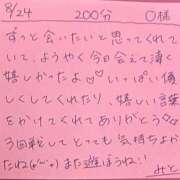 8/24 200分 O様
ずっと会いたいと思ってくれてい
て、ようやく今日会えて凄く
嬉しかったよ♡♡いっぱい優
しくしてくれたり、嬉しい言葉
をかけてくれてありがとう♡♡
3回戦してとっても気持ちよか
ったね(//▽//)また遊ぼうね♡!